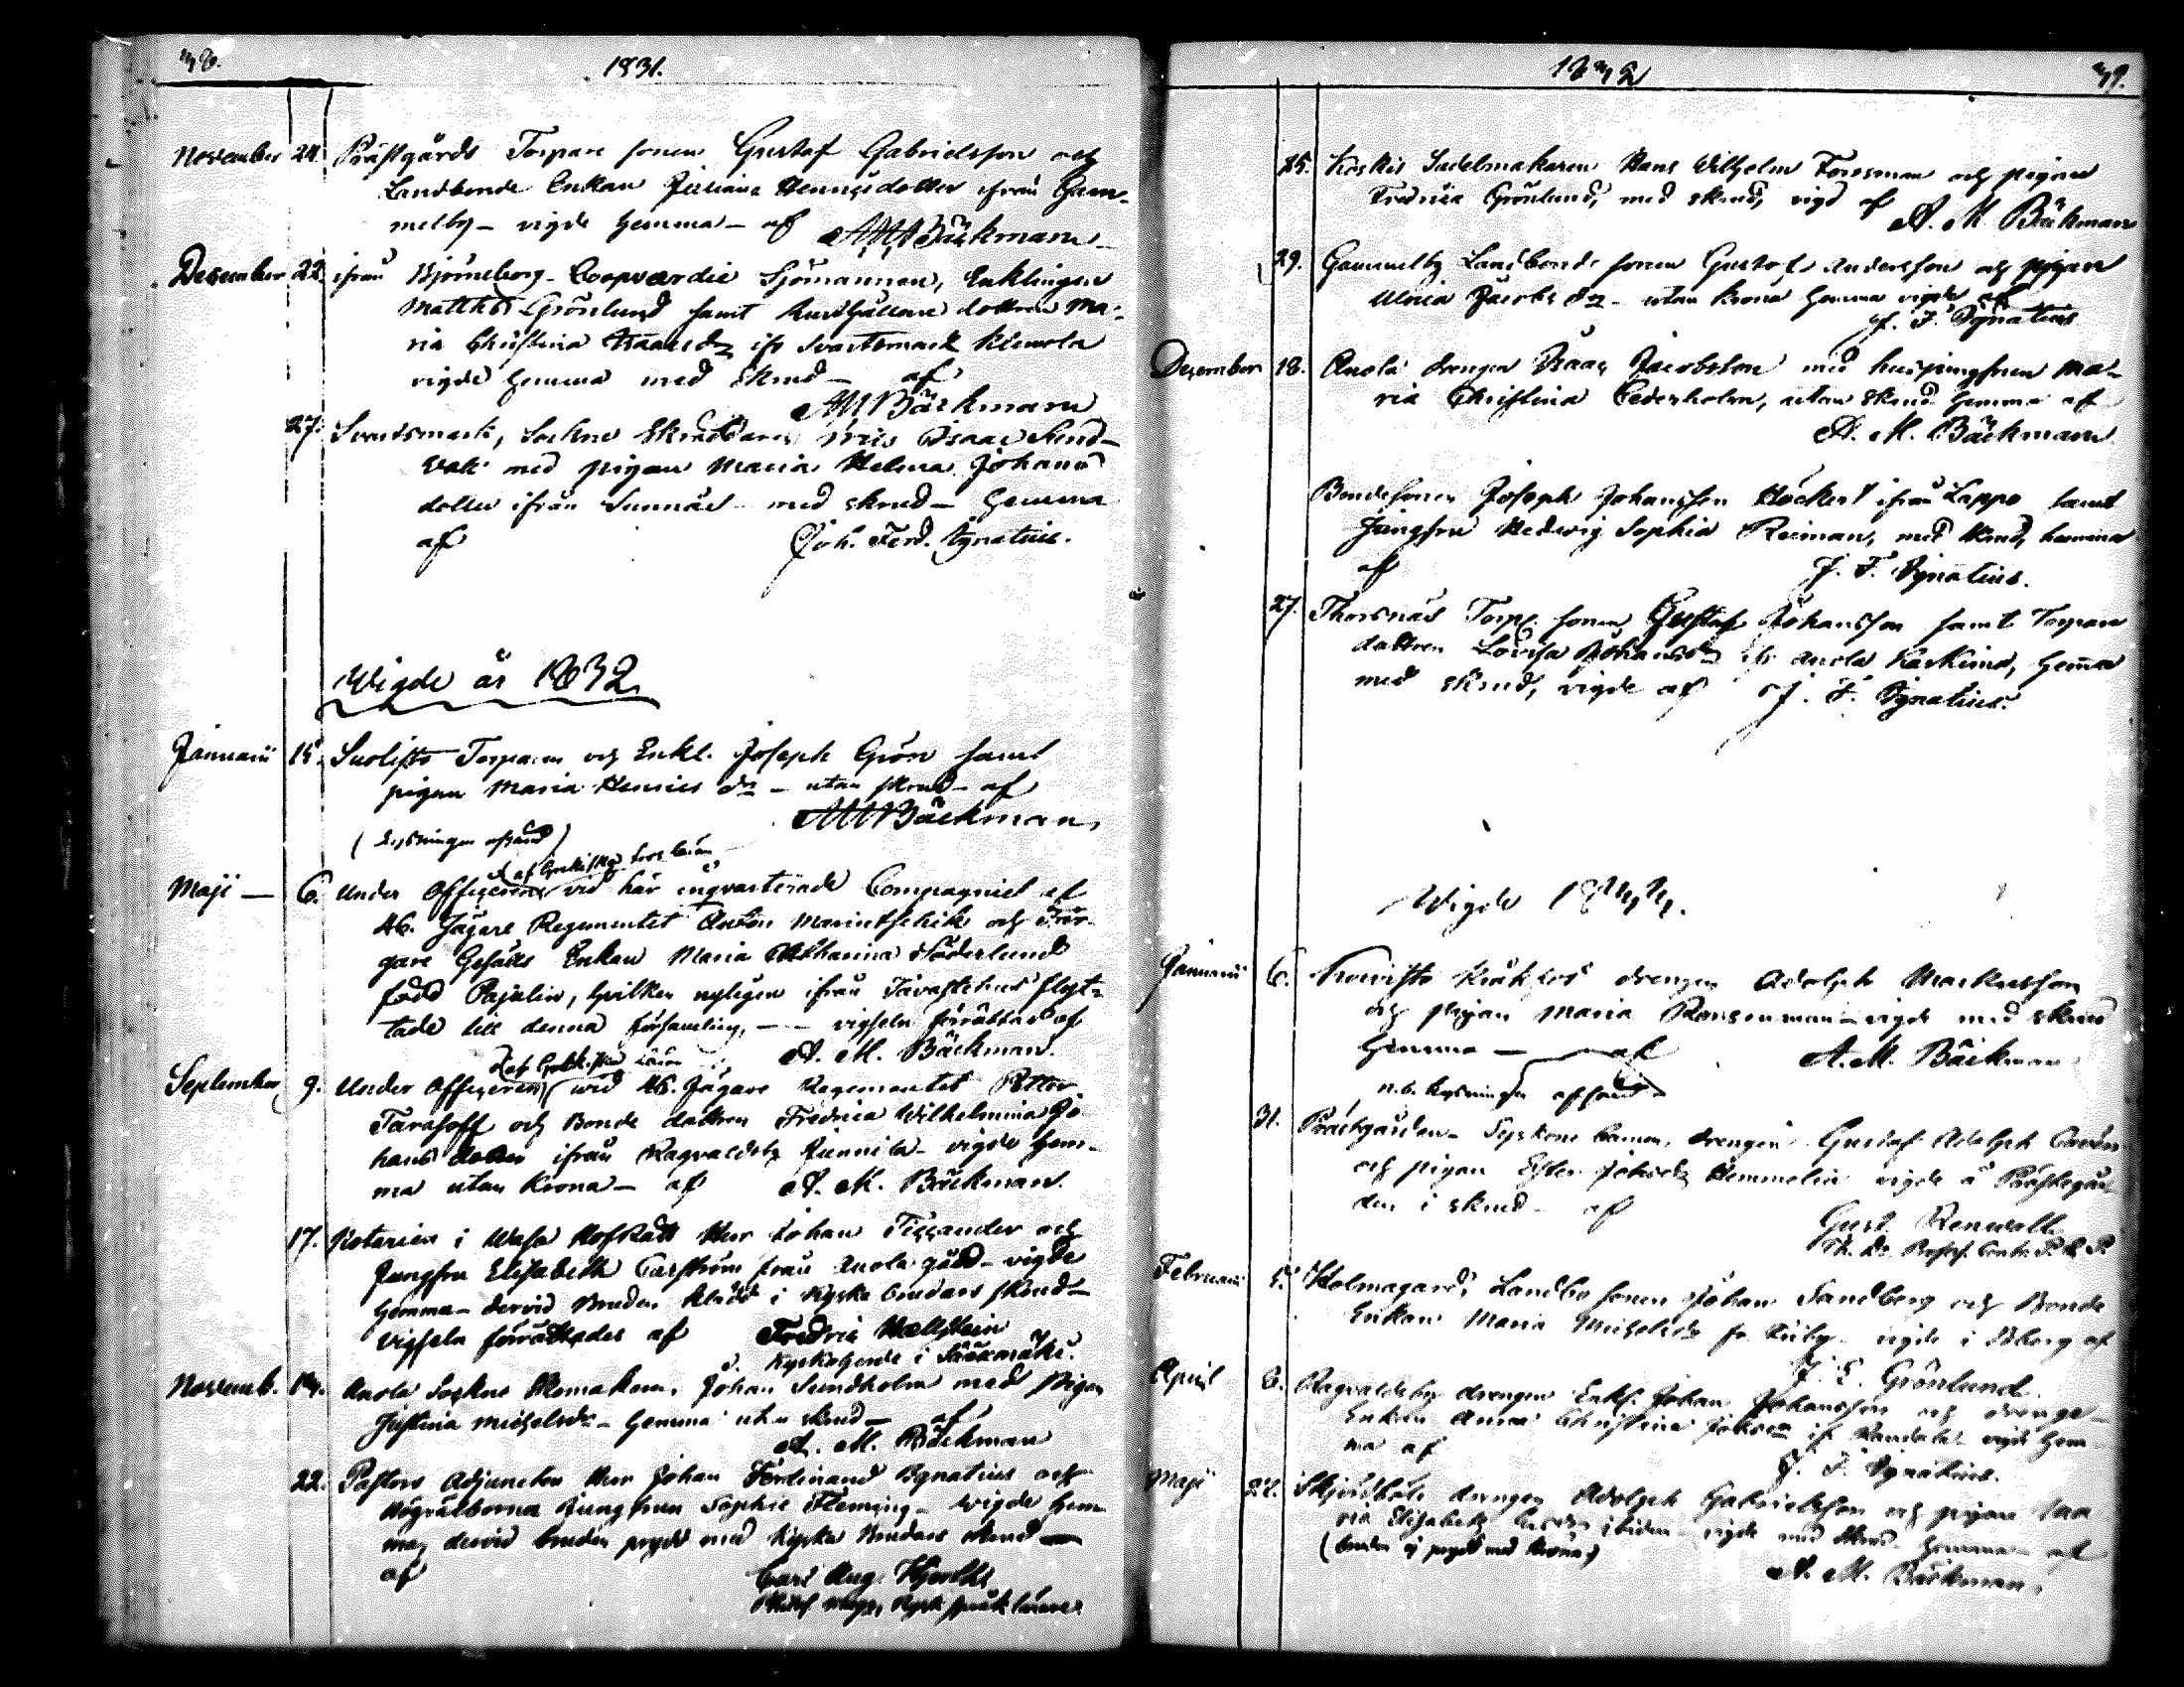 1831.
November 24. Prästgårds Torpare sonen Gustaf Gabrielsson och
Landbonde Enkan Juliana Henrigsdotter ifrån Gam-
melby – vigde hemma – af AM Bäckman
December 22. ifrån Björneborg Coopværdie Sjömannen, Enklingen
Matths Grönlund samt dottren Ma-
ria Christina ifr Svartsmark Klemola
vigde hemma med skrud – af
AM Bäckman
27. Svartsmark, Sockne Skräddaren Isaac Sund-
vall med pigan Maria Helena Johans
dotter ifrån Sunnäs – med skrud – hemma
af Joh. Ferd. Ignatius.
Wigde år 1832
Januarii 15. Suolisto Torparen och Enkl. Joseph Grön samt
pigan Maria Henrics dr – utan skrud – af
AM Bäckman
(Lysningen afsänd)
af Grekiska
Maji — 6. Under Officeren vid här inqvarterade Compagniet af
46. Jägare Regementet Anton och Far-
gare Gesälls Enkan Maria Catharina Söderlund
född Pajulin, hvilken nyligen ifrån Tavastehus flyt-
tade till denna församling, — vigseln förrättad af
A. M. Bäckman.
af Grekiska Läran
September 9. Under Officeren wid 46. Jägare Regementet Petter
Tarasoff och Bonde dottren Fredrica Wilhelmina Jo
hans dotter ifrån Ragvaldsby Junnila – vigde hem-
ma utan Krona – af A. M. Bäckman.
17. Notarien i Wasa Hofrätt Herr Johan Tissander och
Jungfru Elisabeth Carström från Anola gård – vigde
hemma – dervid Bruden klädd i Kyrko brudars skrud –
vigseln förrättades af Fredric Wallstein
Kyrkoherde i Sääxmäki.
Novemb. 14. Anola Sockne Skomakaren Johan Sundholm med Pigan
Justina Michelsdr – hemma utan skrud – af
A. M. Bäckman
22. Pastors Adjuncten Herr Johan Ferdinand Ignatius och
Högvälborna Jungfrun Sophie Fleming – wigde hem
ma, dervid bruden prydd med Kyrko Brudars skrud —
af Carl Aug.
25. Koskis Sadelmakaren Hans Wilhelm Forsman och pigan
Fredrica Grönlund, med skrud, vigd af
A. M. Bäckman
29. Gammelby Landbonde sonen Gustaf Andersson och pigan
Ulrica Jacobs dr – utan krona hemma vigde af
J. F. Ignatius
December 18. Anola drengen Isaac Jacobsson med husjungfrun Ma-
ria Christina Cederholm, utan skrud hemma af
A. M. Bäckman
Bondesonen Joseph Johansson Höckert ifrån Lappo samt
Jungfru Hedwig Sophia Reiman, med skrud, hemma
af J. F. Ignatius.
27. Thorsnäs Torp. sonen Gustaf Johansson samt Torpare
dottren Lovisa Johansdr ifr Anola Kaskima, hemma
med skrud, vigde af J. F. Ignatius.
Wigde
Januarii 6. drengen Adolph Markusson
och pigan Maria – vigde med skrud
hemma — af A. M. Bäckman
n.b. Lysningen afsänd
31. Prästgården – drengen Gustaf Adolph
och pigan Hemmelin vigde å Prästegår-
den i skrud – af
Gust. Renvall
Februarii 5. Holmagård, Landbo sonen Johan Sandberg och Bonde
Enkan Maria vigde i af
J. E. Grönlund.
April 6. Ragvaldsby drengen Enkl. Johan Johansson och drenge-
Enkan Anna Christina vigde hem-
ma af J. F. Ignatius.
Maji drengen Adolph Gabrielsson och pigan Ma
ria Elisabeth ibidem – vigde med skrud – hemma – af
(bruden ej prydd med krona)
A. M. Bäckman.